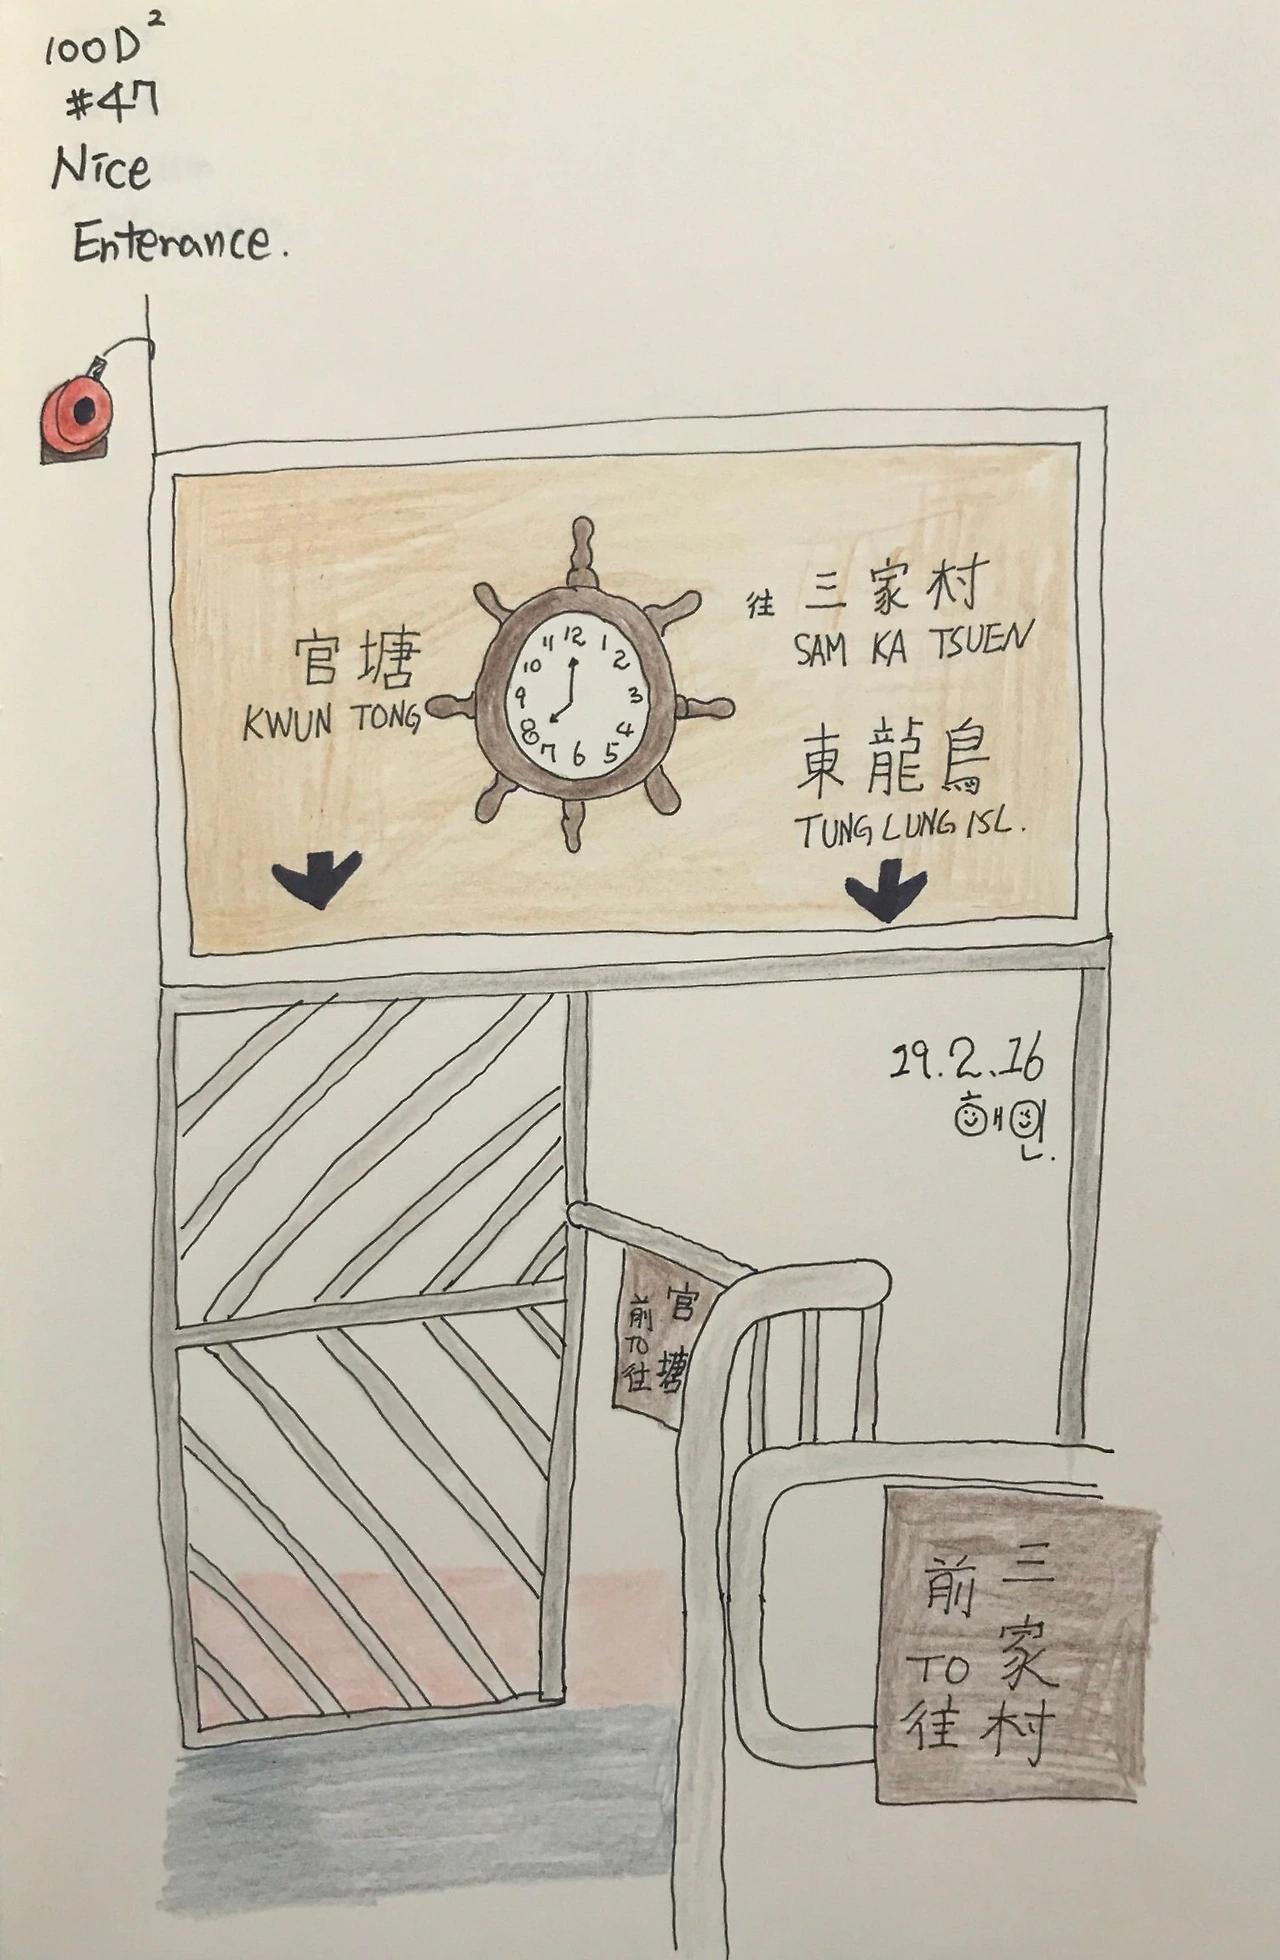 100D²
#47
Nice
Enterance.
官塘
KWUN TONG
12
1
2
3
4
5
6
7
8
9
10
11
往 三家村
SAM KA TSUEN
東龍島
TUNG LUNG ISL.
29.2.16
官塘
前TO往
三家村
前TO往